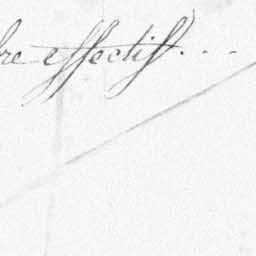 bre effectif...